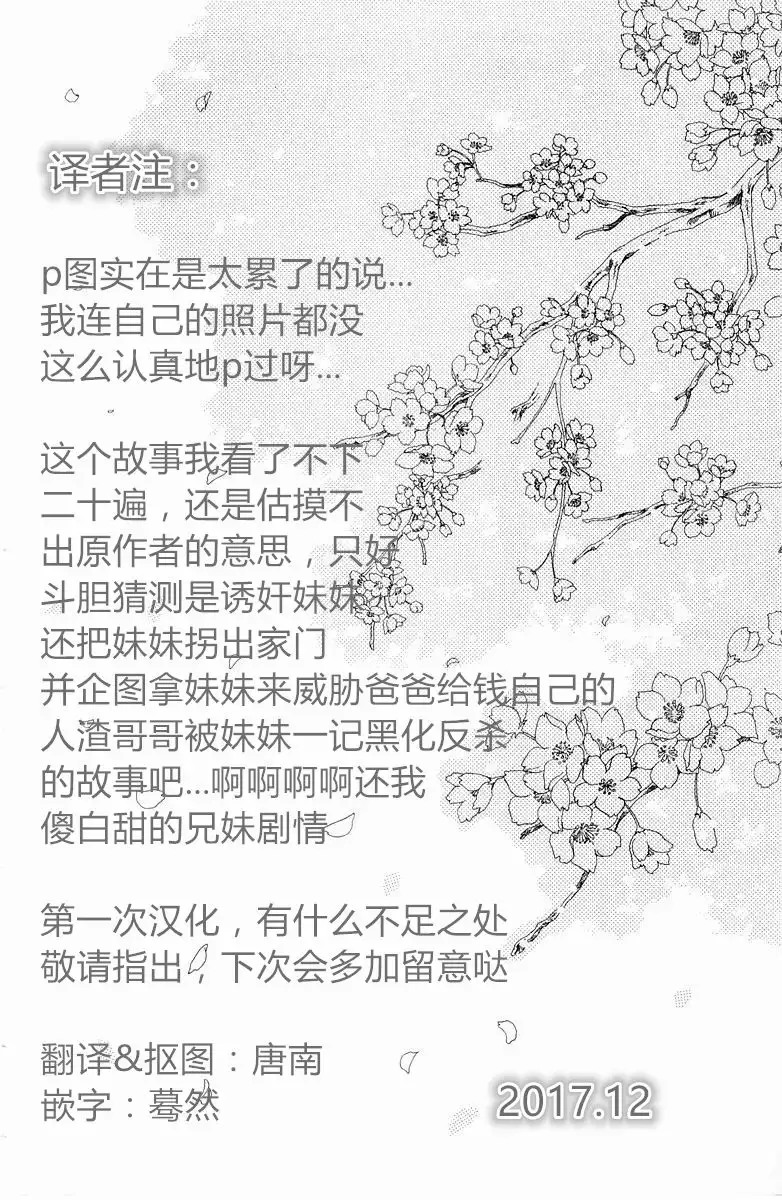 译者注：
p图实在是太累了的说...
我连自己的照片都没
这么认真地p过呀...
这个故事我看了不下
二十遍，还是估摸不
出原作者的意思，只好
斗胆猜测是诱奸妹妹
还把妹妹拐出家门
并企图拿妹妹来威胁爸爸给钱自己的
人渣哥哥被妹妹一记黑化反杀
的故事吧...啊啊啊啊还我
傻白甜的兄妹剧情
第一次汉化，有什么不足之处
敬请指出，下次会多加留意哒
翻译&抠图：唐南
嵌字：蓦然
2017.12